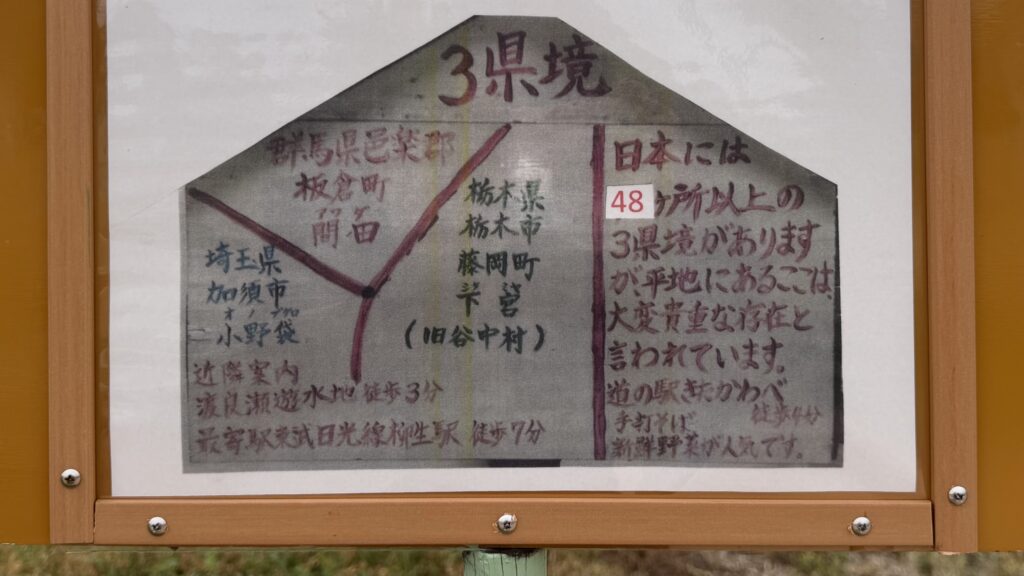 3県境
群馬県邑楽郡
板倉町
栃木県
栃木市
藤岡町
下宮
(旧谷中村)
埼玉県
加須市
小野袋
近隣案内
渡良瀬遊水地 徒歩3分
最寄駅東武日光線柳生駅 徒歩7分
日本には
48ヶ所以上の
3県境があります
が、平地にあるここは、
大変貴重な存在と
言われています。
道の駅きたかわべ
徒歩4分
手打そば
新鮮野菜が人気です。